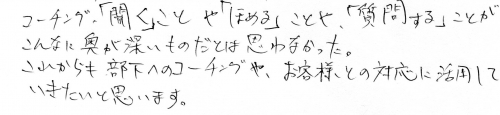 コーチング、「聞く」ことや「ほめる」ことや、「質問する」ことが
こんなに奥が深いものだとは思わなかった。
これからも部下へのコーチングや、お客様との対応に活用して
いきたいと思います。